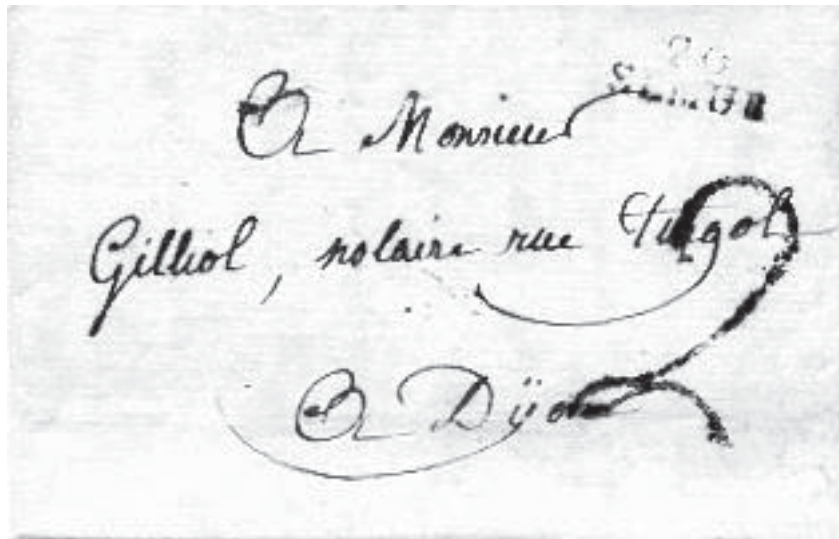 20
A Monsieur
Gilliot, notaire rue Turgot
A Dijon
2